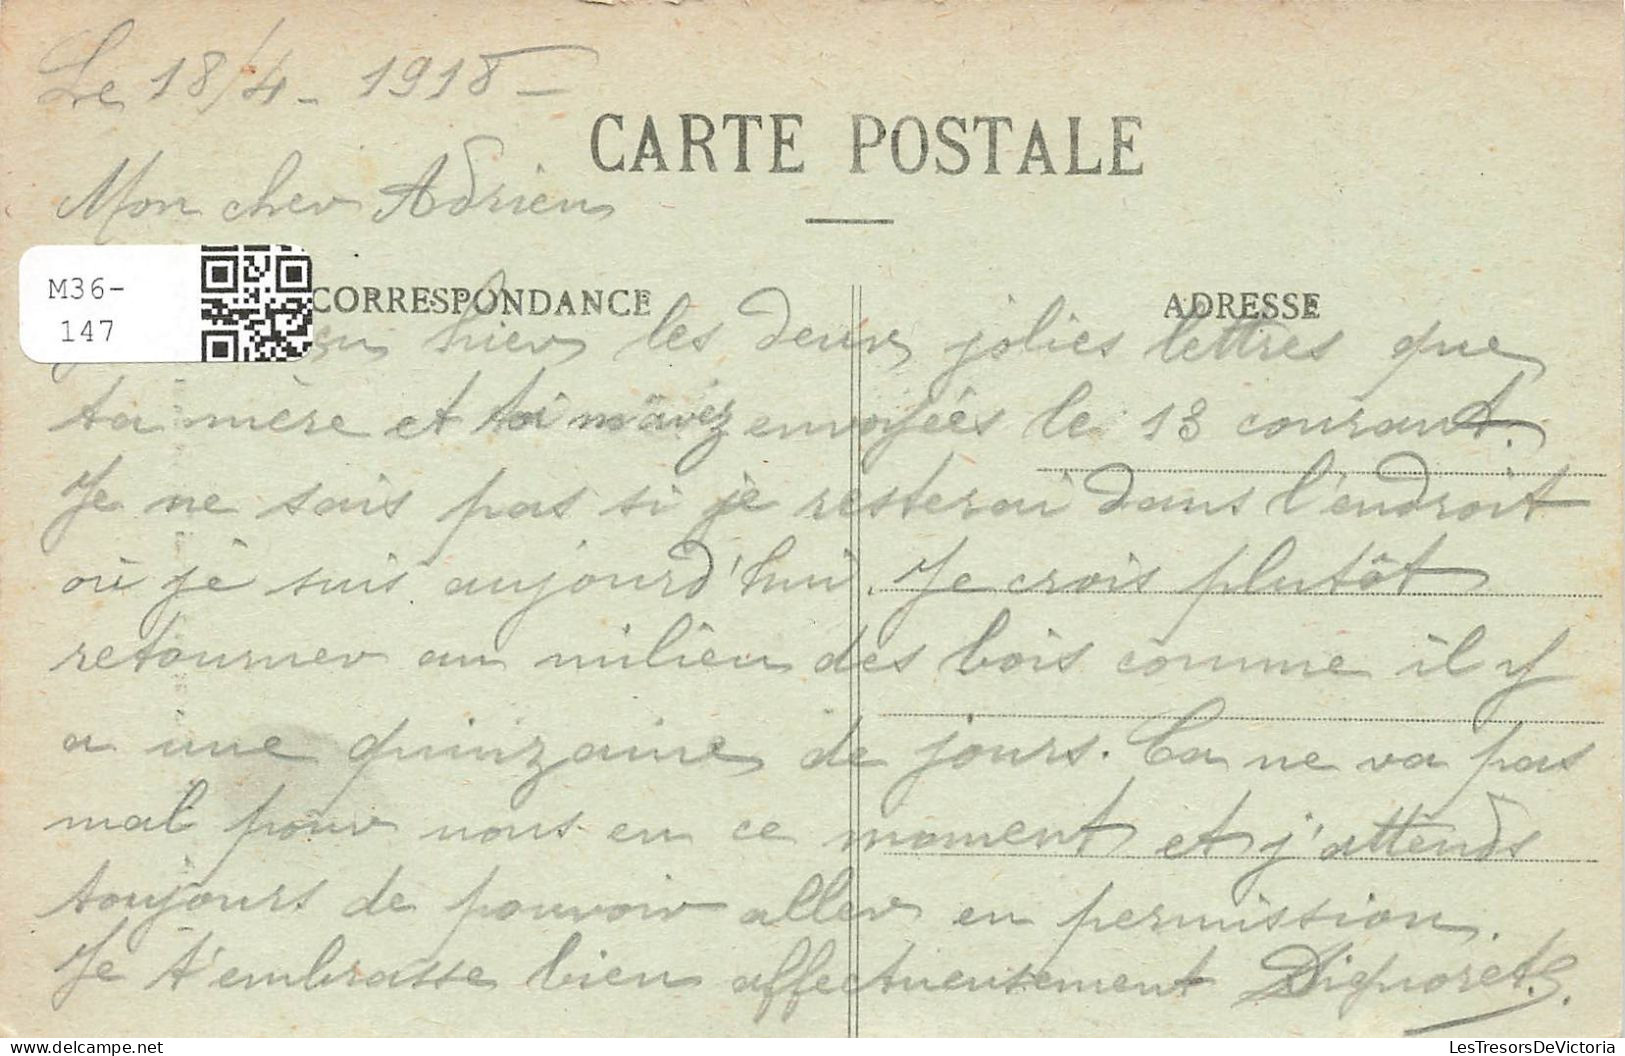 Le 18/4 - 1918 -
CARTE POSTALE
Mon cher Adrien
M36-
147
CORRESPONDANCE
ADRESSE
hier les deux jolies lettres que
ta mère et toi m'avez envoyées le 13 courant.
Je ne sais pas si je resterai dans l'endroit
où je suis aujourd'hui. Je crois plutôt
retourner au milieu des bois comme il y
a une quinzaine de jours. Ca ne va pas
mal pour nous en ce moment et j'attends
toujours de pouvoir aller en permission.
Je t'embrasse bien affectueusement
LesTresorsDeVictoria.com